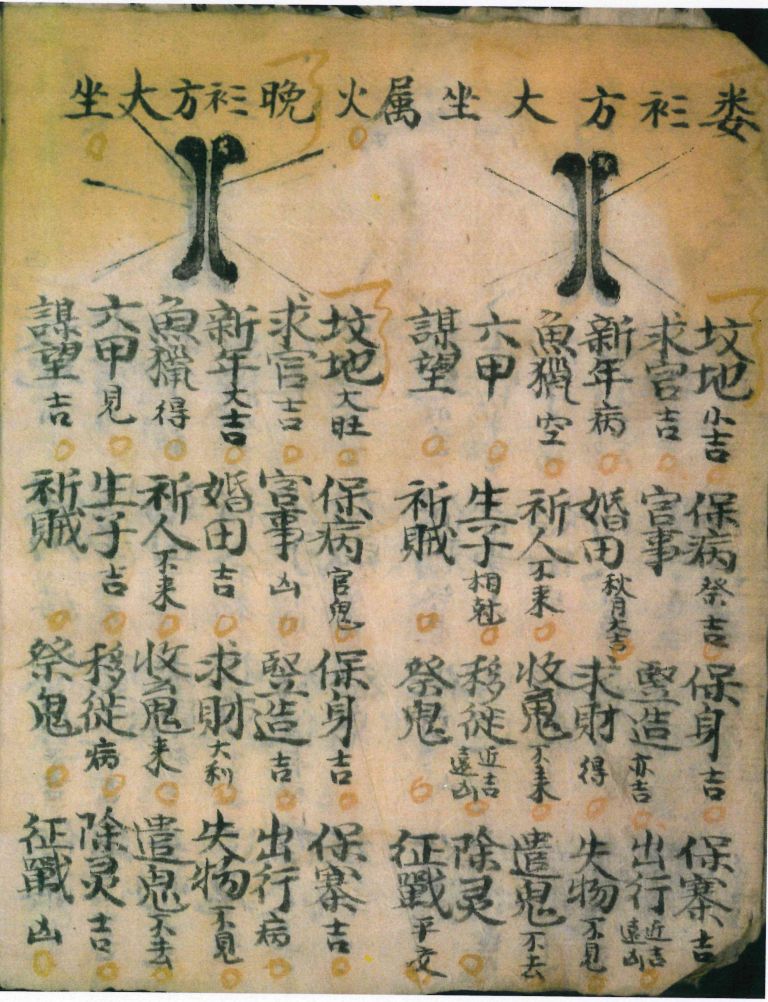 娄衫方大坐属火晚衫方大坐
坟地小吉 保病祭吉 保身吉 保寨吉
求官吉 官事 竪造亦吉 出行近吉遠凶
新年病 婚田秋月大吉 求財得 失物不見
魚獵空 祈人不来 收鬼不来 遣鬼不去
六甲 生子相尅 移徙近吉遠凶 除灵
謀望 祈賊 祭鬼 征戰平交
坟地大旺 保病官鬼 保身吉 保寨吉
求官吉 官事凶 竪造吉 出行病
新年大吉 婚田吉 求財大利 失物不見
魚獵得 祈人不来 收鬼来 遣鬼不去
六甲見 生子吉 移徙病 除灵吉
謀望吉 祈賊 祭鬼 征戰凶